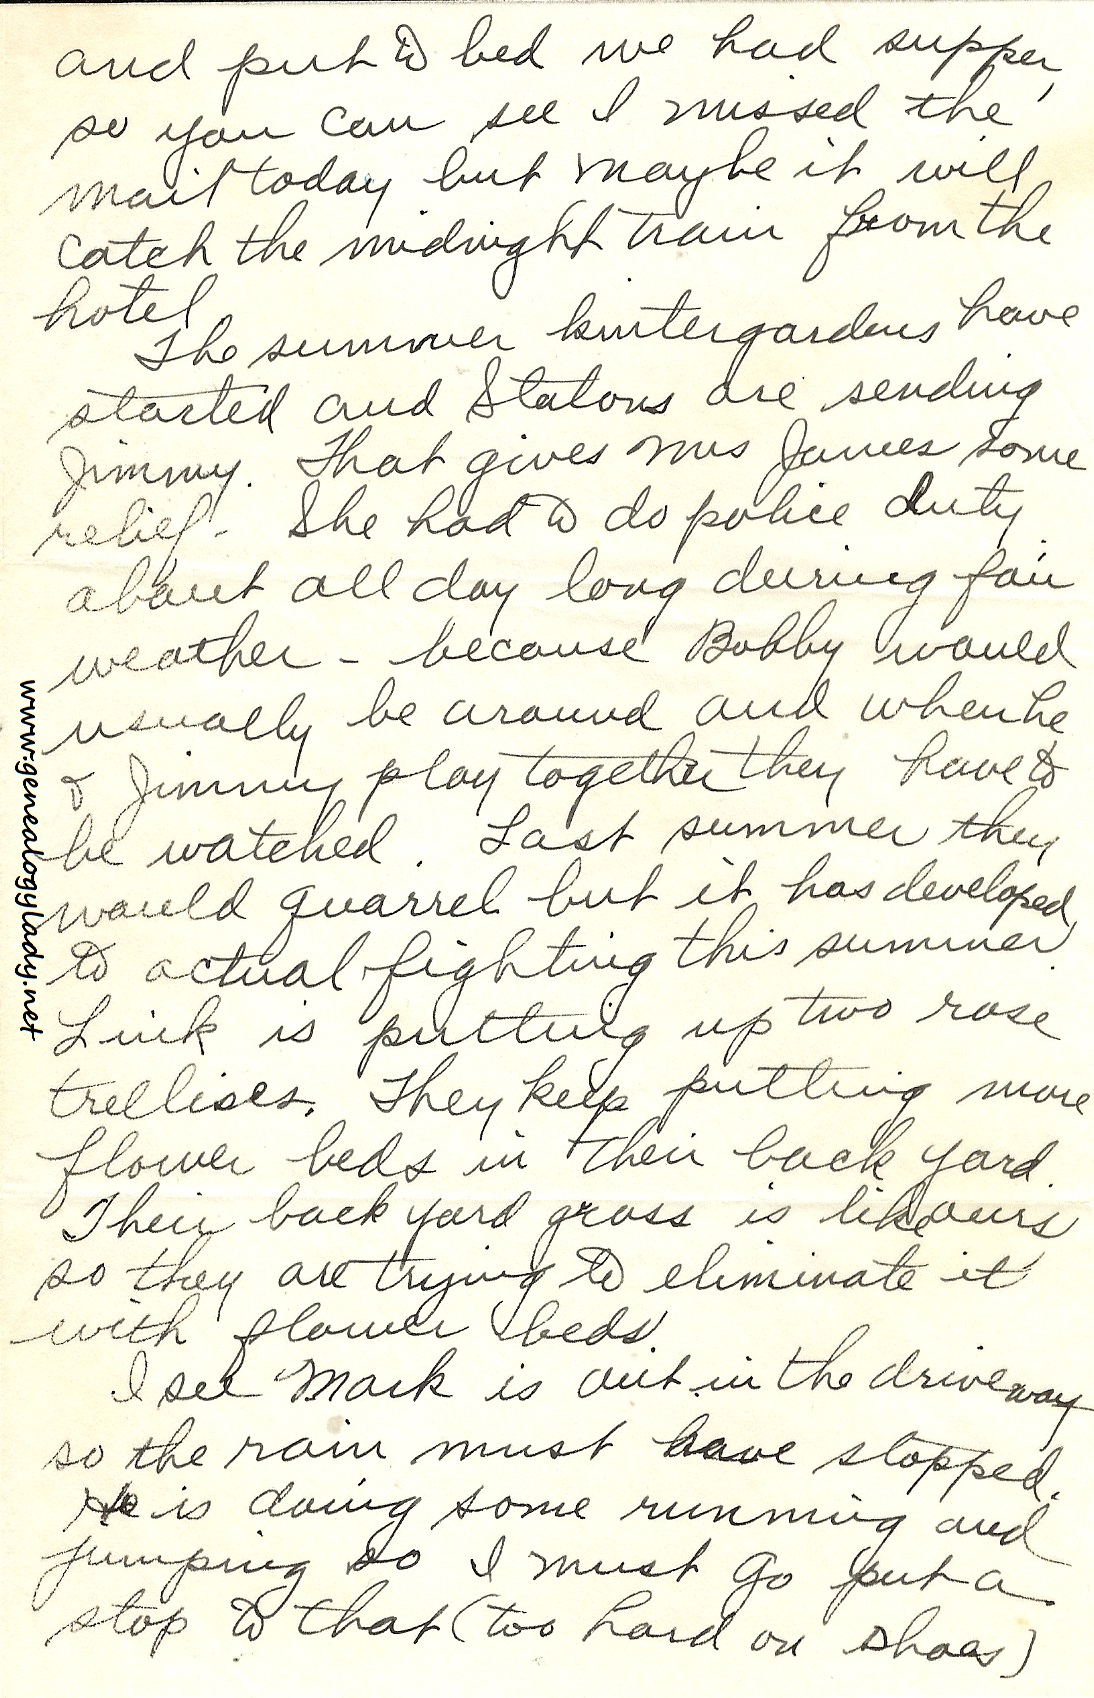 and put to bed we had supper,
so you can see I missed the
mail today but maybe it will
catch the midnight train from the
hotel
The summer kintergardens have
started and Statons are sending
Jimmy. That gives Mrs James some
relief - She had to do police duty
about all day long during fair
weather - because Bobby would
usually be around and when he
& Jimmy play together they have to
be watched. Last summer they
would quarrel but it has developed
to actual fighting this summer.
Link is putting up two rose
trellises. They keep putting more
flower beds in their back yard.
Their back yard grass is like ours
so they are trying to eliminate it
with flower beds
I see Mark is out in the driveway
so the rain must have stopped.
He is doing some running and
jumping so I must go put a
stop to that (too hard on shoes)
www.genealogylady.net